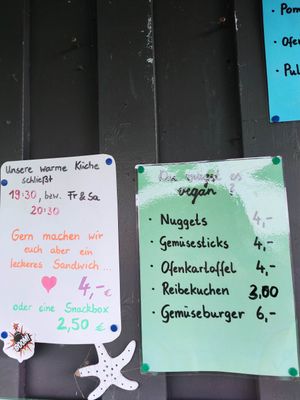 Pom
Ofe
Pul
Unsere warme Küche
schließt
19:30, bzw. Fr & Sa
20:30
Gern machen wir
euch aber ein
leckeres Sandwich...
4,- €
oder eine Snackbox
2,50 €
BOOM!
Du magst es
vegan ?
• Nuggets 4,-
• Gemüsesticks 4,-
• Ofenkartoffel 4,-
• Reibekuchen 3,00
• Gemüseburger 6,-